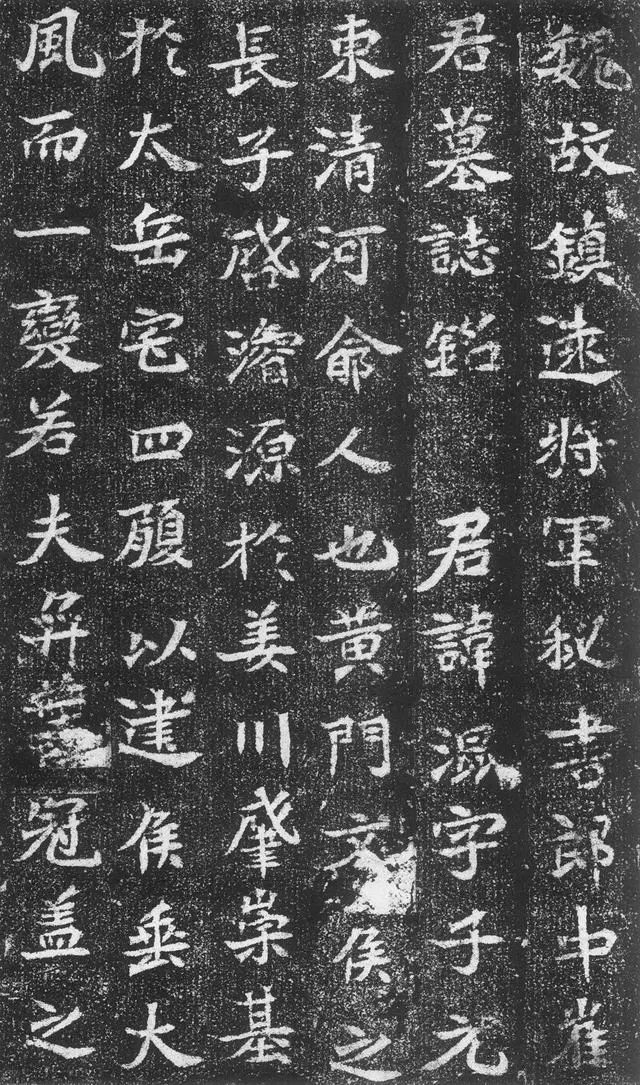 魏故鎮遠將軍秘書郎中崔
君墓誌銘 君諱混字子元
東清河俞人也黄門文侯之
長子啓濬源於姜川肇崇基
於太岳宅四履以建侯垂大
風而一變若夫弈冠盖之